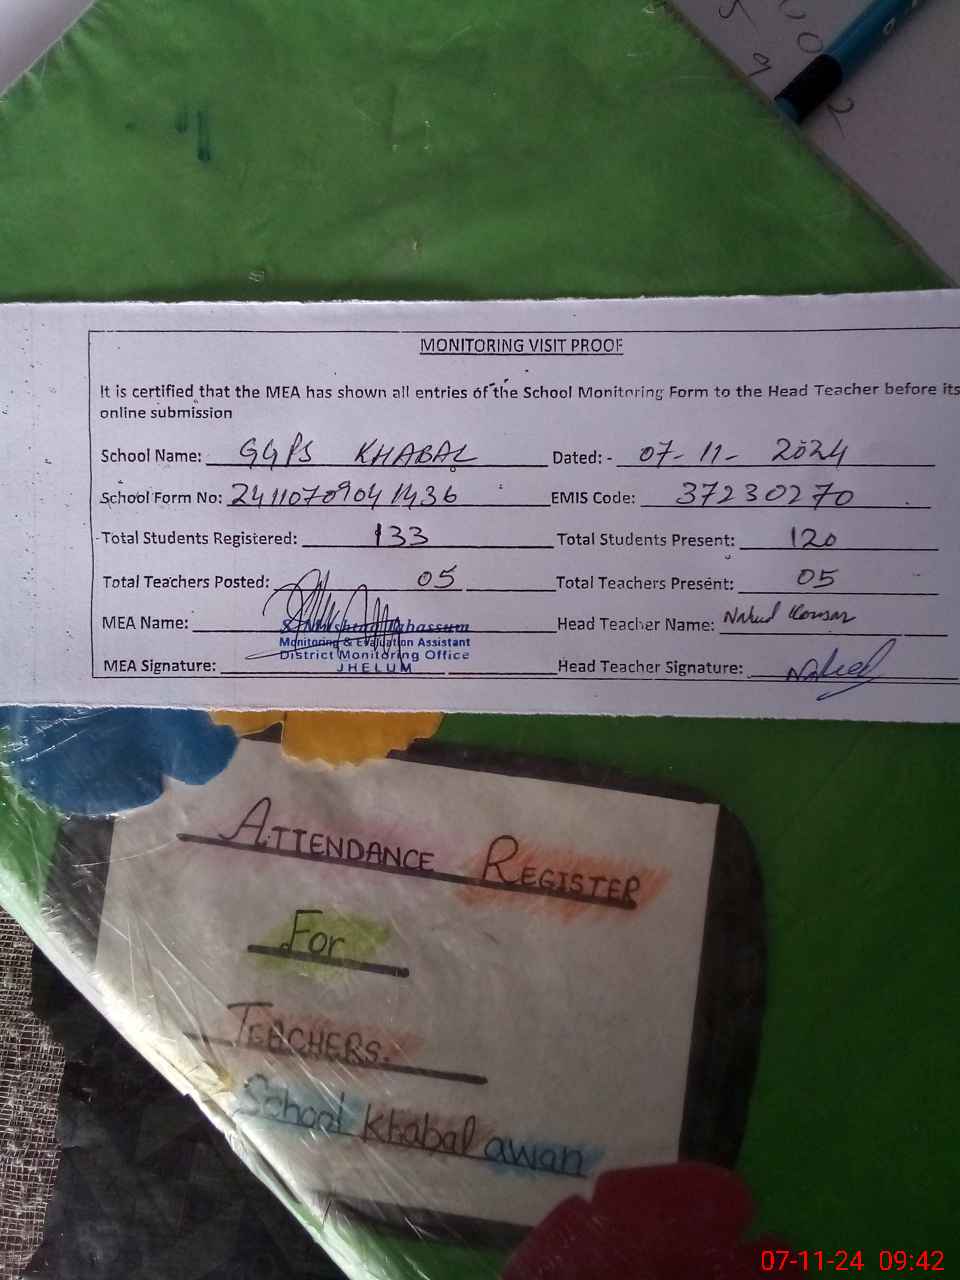 MONITORING VISIT PROOF
It is certified that the MEA has shown all entries of the School Monitoring Form to the Head Teacher before its
online submission
School Name: GGPS KHABAL Dated: - 07-11-2024
School Form No: 2411070904 1436 EMIS Code: 37230270
Total Students Registered: 133 Total Students Present: 120
Total Teachers Posted: 05 Total Teachers Present: 05
MEA Name: Head Teacher Name: Nahed Kousar
Monitoring & Evaluation Assistant
District Monitoring Office
MEA Signature: JHELUM Head Teacher Signature: Naheed
ATTENDANCE REGISTER
For
TEACHERS.
School Khabal awan
07-11-24 09:42